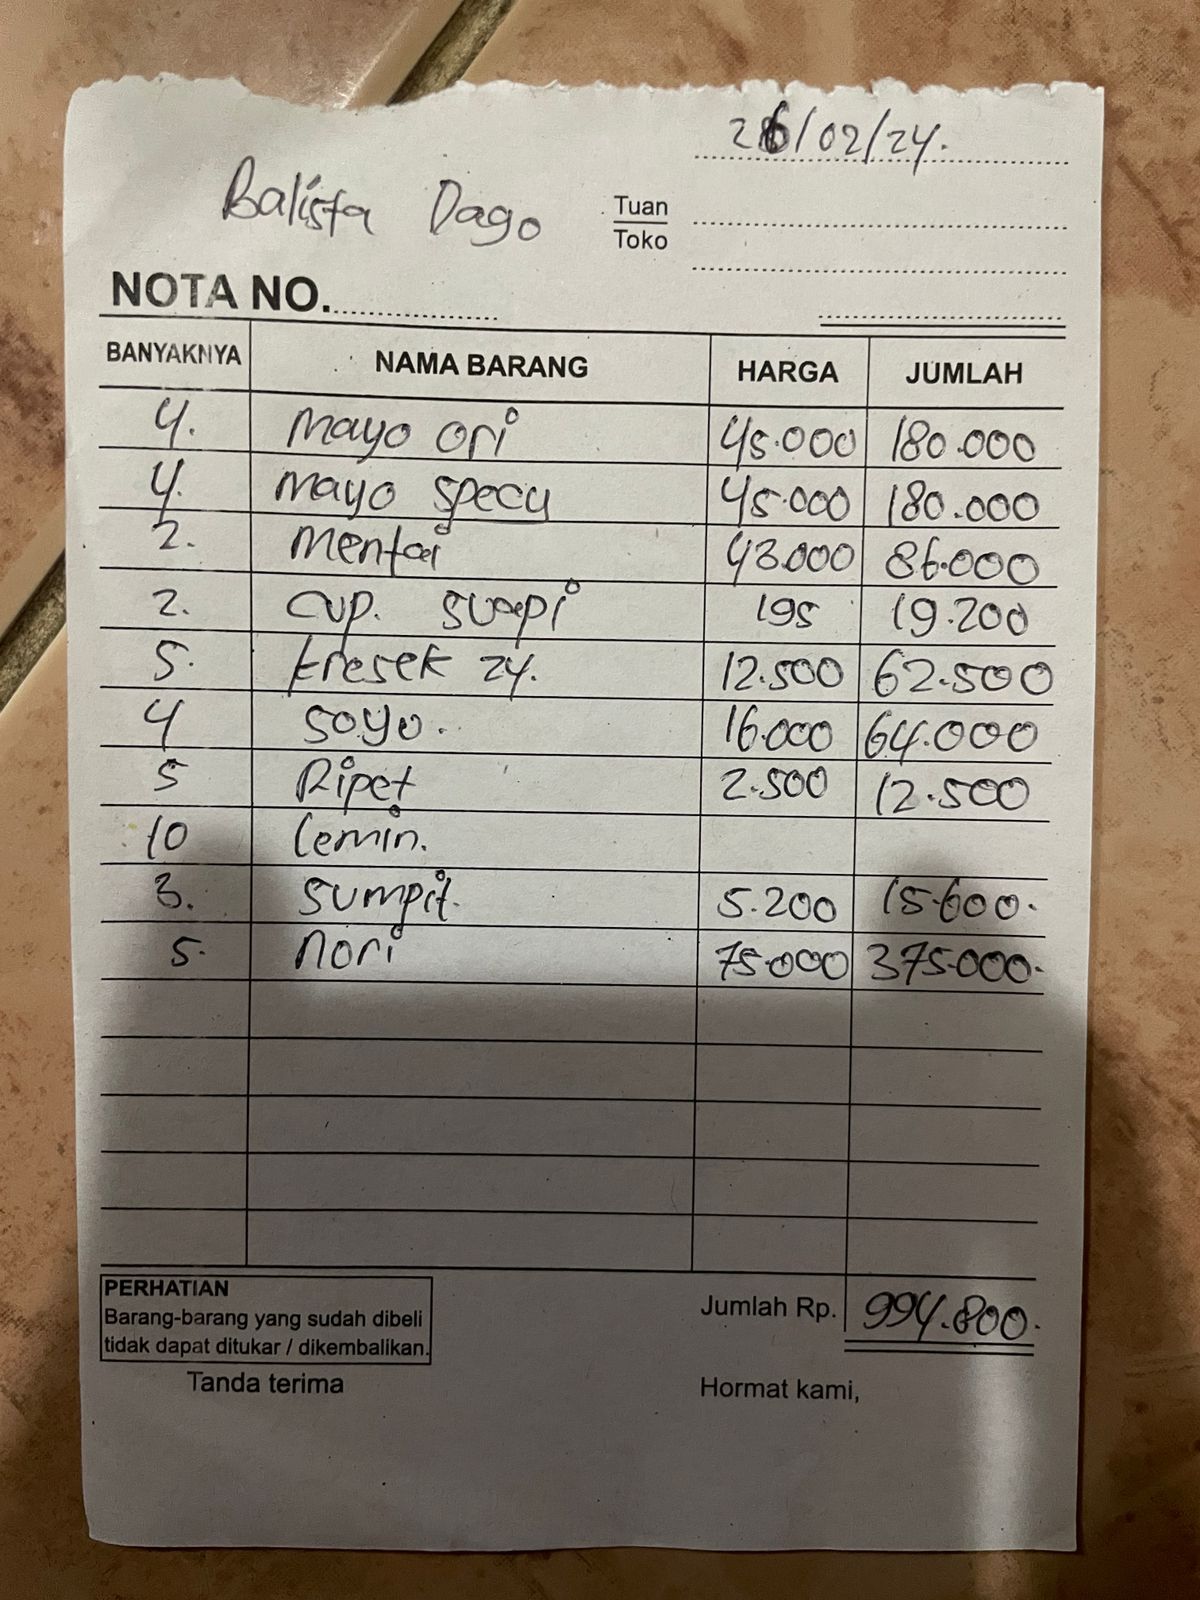 26/02/24.
Balista Dago
Tuan
Toko
NOTA NO.
BANYAKNYA NAMA BARANG HARGA JUMLAH
4. Mayo ori 45.000 180.000
4. Mayo specy 45.000 180.000
2. Mentai 43.000 86.000
2. Cup. suapi 195 19.200
5. kresek 24. 12.500 62.500
4 soyo. 16.000 64.000
5 Ripet 2.500 12.500
10 lemin.
3. sumpit. 5.200 15.600.
5. nori 75.000 375.000.
PERHATIAN
Barang-barang yang sudah dibeli
tidak dapat ditukar / dikembalikan.
Jumlah Rp. 994.800.
Tanda terima Hormat kami,